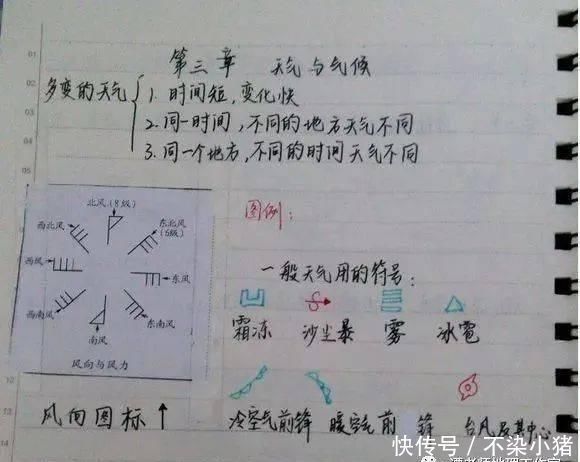 第三章 天气与气候
多变的天气
1. 时间短,变化快
2. 同一时间,不同的地方天气不同
3. 同一个地方,不同的时间天气不同
北风(8级)
西北风
东北风(6级)
西风
东风
西南风
东南风
南风
风向与风力
风向图标↑
图例:
一般天气用的符号:
霜冻 沙尘暴 雾 冰雹
冷空气前锋 暖空气前 锋 台风及其中心
快传号/不染小猪
01
02
03
04
05
12
13
14